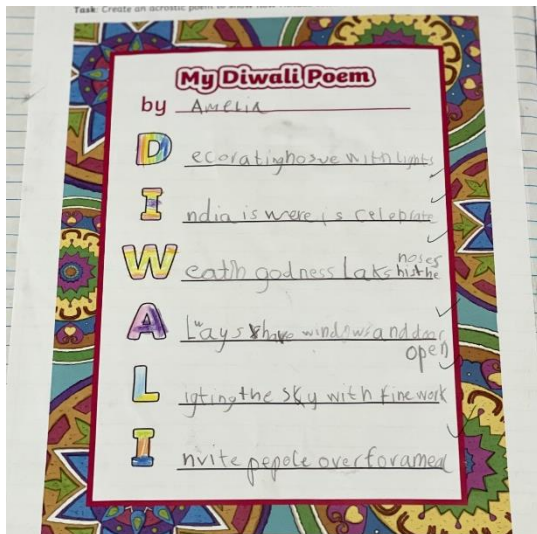 Task: Create an acrostic poem to show how
My Diwali Poem
by Amelia
D ecoratinghosue with lights
I ndia is were is celeprate
W eath godness Laks histhe noses
A Lways have windows and door open
L igting the sky with fine work
I nvite pepole over for a meal